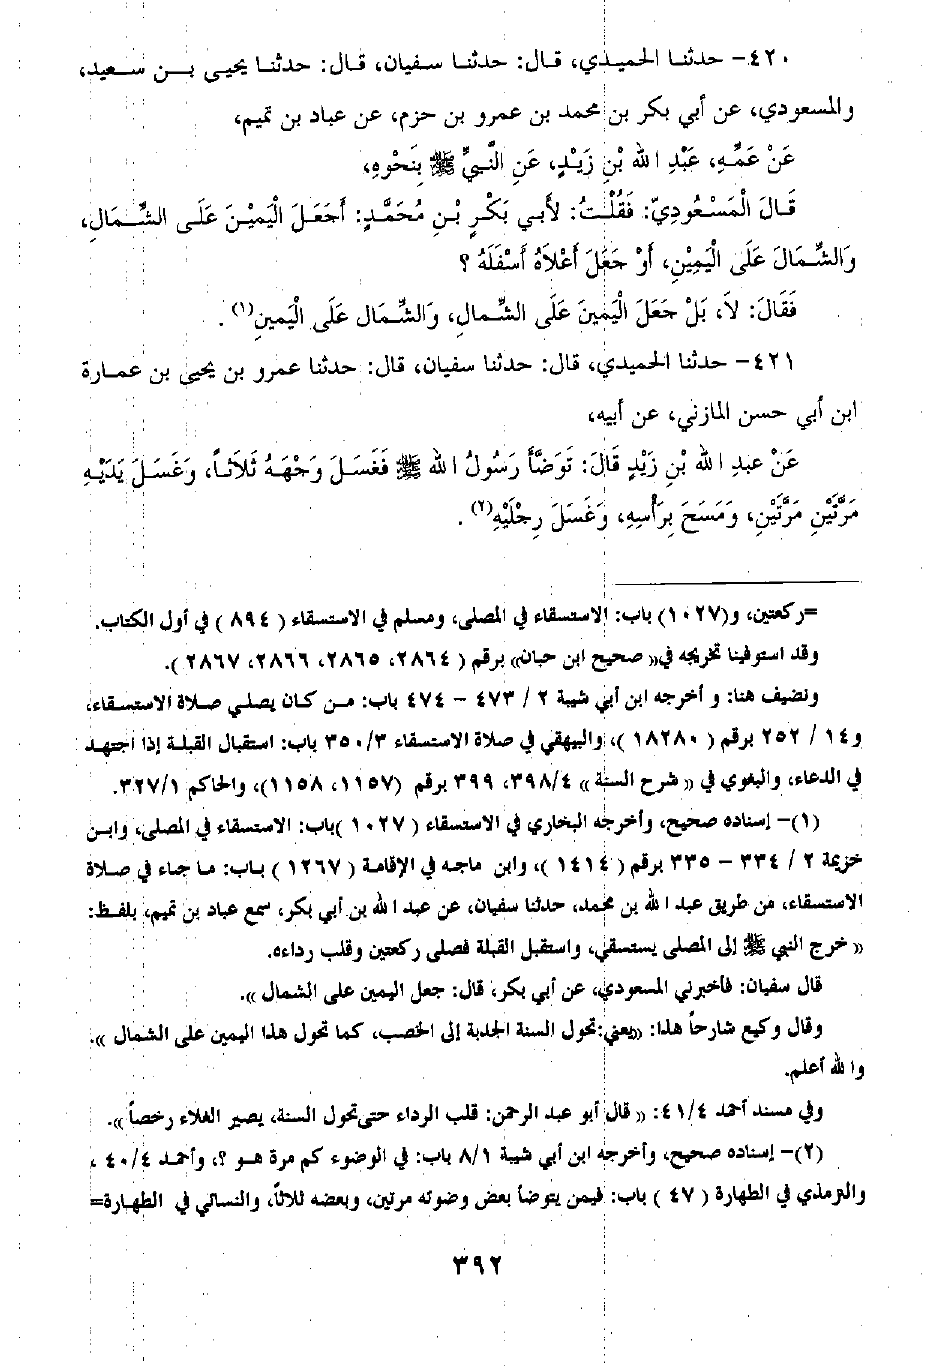 ٤٢٠- حدثنا الحميدي، قال: حدثنا سفيان، قال: حدثنا يحيى بن سعيد،
والمسعودي، عن أبي بكر بن محمد بن عمرو بن حزم، عن عباد بن تميم،
عَنْ عَمِّهِ، عَبْدِ اللهِ بْنِ زَيْدٍ، عَنِ النَّبِيِّ ﷺ بِنَحْوِهِ،
قَالَ الْمَسْعُودِيّ: فَقُلْتُ: لأَبِي بَكْرِ بْنِ مُحَمَّدٍ: أَجَعَلَ الْيَمِيْنَ عَلَى الشِّمَالِ،
وَالشِّمَالَ عَلَى الْيَمِيْنِ، أَوْ جَعَلَ أَعْلاَهُ أَسْفَلَهُ ؟
فَقَالَ: لاَ، بَلْ جَعَلَ الْيَمِيْنَ عَلَى الشِّمالِ، وَالشِّمَال عَلَى الْيَمِينِ(١).
٤٢١- حدثنا الحميدي، قال: حدثنا سفيان، قال: حدثنا عمرو بن يحيى بن عمارة
ابن أبي حسن المازني، عن أبيه،
عَنْ عبدِ اللهِ بْنِ زَيْدٍ قَالَ: تَوَضَّأَ رَسُولُ اللهِ ﷺ فَغَسَلَ وَجْهَهُ ثَلَاثاً، وَغَسَلَ يَدَيْهِ
مَرَّتَيْنِ مَرَّتَيْنِ، وَمَسَحَ بِرَأْسِهِ، وَغَسَلَ رِجْلَيْهِ(٢).
=ركعتين، و(١٠٢٧) باب: الاستسقاء في المصلى، ومسلم في الاستسقاء ( ٨٩٤ ) في أول الكتاب.
وقد استوفينا تخريجه في« صحيح ابن حبان» برقم ( ٢٨٦٤، ٢٨٦٥، ٢٨٦٦، ٢٨٦٧ ).
ونضيف هنا: و أخرجه ابن أبي شيبة ٢ / ٤٧٣ – ٤٧٤ باب: من كان يصلي صلاة الاستسقاء،
و١٤ / ٢٥٢ برقم ( ١٨٢٨٠ )، والبيهقي في صلاة الاستسقاء ٣٥٠/٣ باب: استقبال القبلة إذا اجتهد
في الدعاء، والبغوي في « شرح السنة » ٣٩٨/٤، ٣٩٩ برقم (١١٥٧، ١١٥٨)، والحاكم ٣٢٧/١.
(١)- إسناده صحيح، وأخرجه البخاري في الاستسقاء ( ١٠٢٧ )باب: الاستسقاء في المصلى، وابن
خزيمة ٢ / ٣٣٤ – ٣٣٥ برقم ( ١٤١٤ )، وابن ماجه في الإقامة ( ١٢٦٧ ) باب: ما جاء في صلاة
الاستسقاء، من طريق عبد الله بن محمد، حدثنا سفيان، عن عبد الله بن أبي بكر، سمع عباد بن تميم، بلفظ:
« خرج النبي ﷺ إلى المصلى يستسقي، واستقبل القبلة فصلى ركعتين وقلب رداءه.
قال سفيان: فأخبرني المسعودي، عن أبي بكر، قال: جعل اليمين على الشمال ».
وقال وكيع شارحاً هذا: «يعني:تحول السنة الجدبة إلى الخصب، كما تحول هذا اليمين على الشمال ».
والله أعلم.
وفي مسند أحمد ٤١/٤: « قال أبو عبد الرحمن: قلب الرداء حتى تحول السنة، يصير الغلاء رخصاً ».
(٢)- إسناده صحيح، وأخرجه ابن أبي شيبة ٨/١ باب: في الوضوء كم مرة هو ؟، وأحمد ٤٠/٤ ،
والترمذي في الطهارة ( ٤٧ ) باب: فيمن يتوضأ بعض وضوئه مرتين، وبعضه ثلاثاً، والنسائي في الطهارة=
٣٩٢